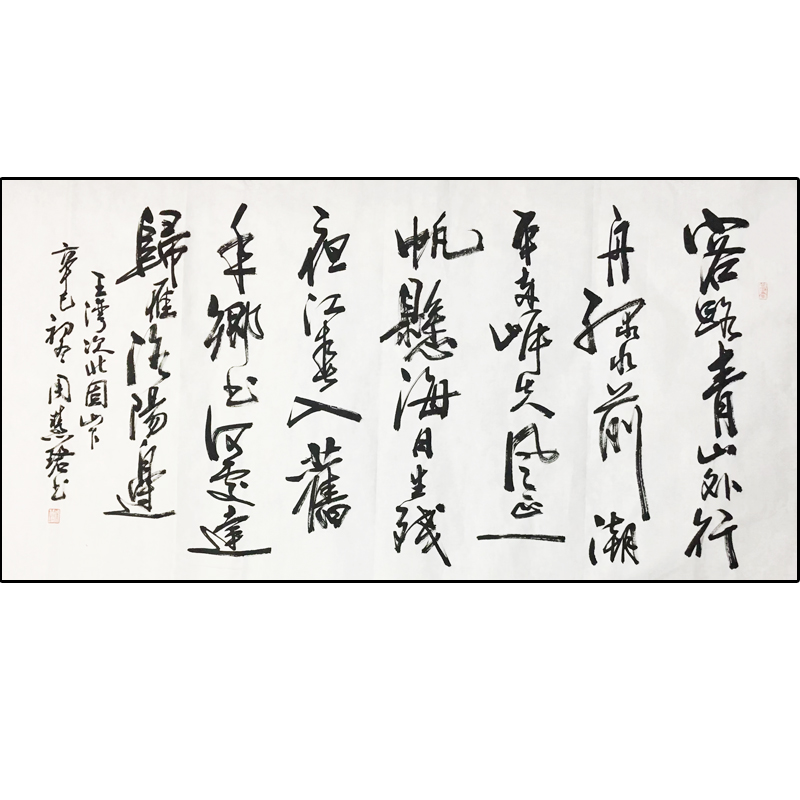 客路青山外行
舟綠水前潮
平兩岸失風正一
帆懸海日生殘
夜江春入舊
年鄉书何處達
歸雁洛陽邊
王灣次北固山下
辛巳初冬周慧珺书